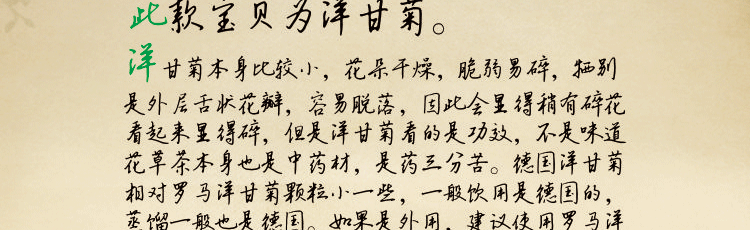 此款宝贝为洋甘菊。
洋甘菊本身比较小，花朵干燥，脆弱易碎，牺别
是外层舌状花瓣，容易脱落，因此会显得稍有碎花
看起来显得碎，但是洋甘菊看的是功效，不是味道
花草茶本身也是中药材，是药三分苦。德国洋甘菊
相对罗马洋甘菊颗粒小一些，一般饮用是德国的，
蒸馏一般也是德国。如果是外用，建议使用罗马洋